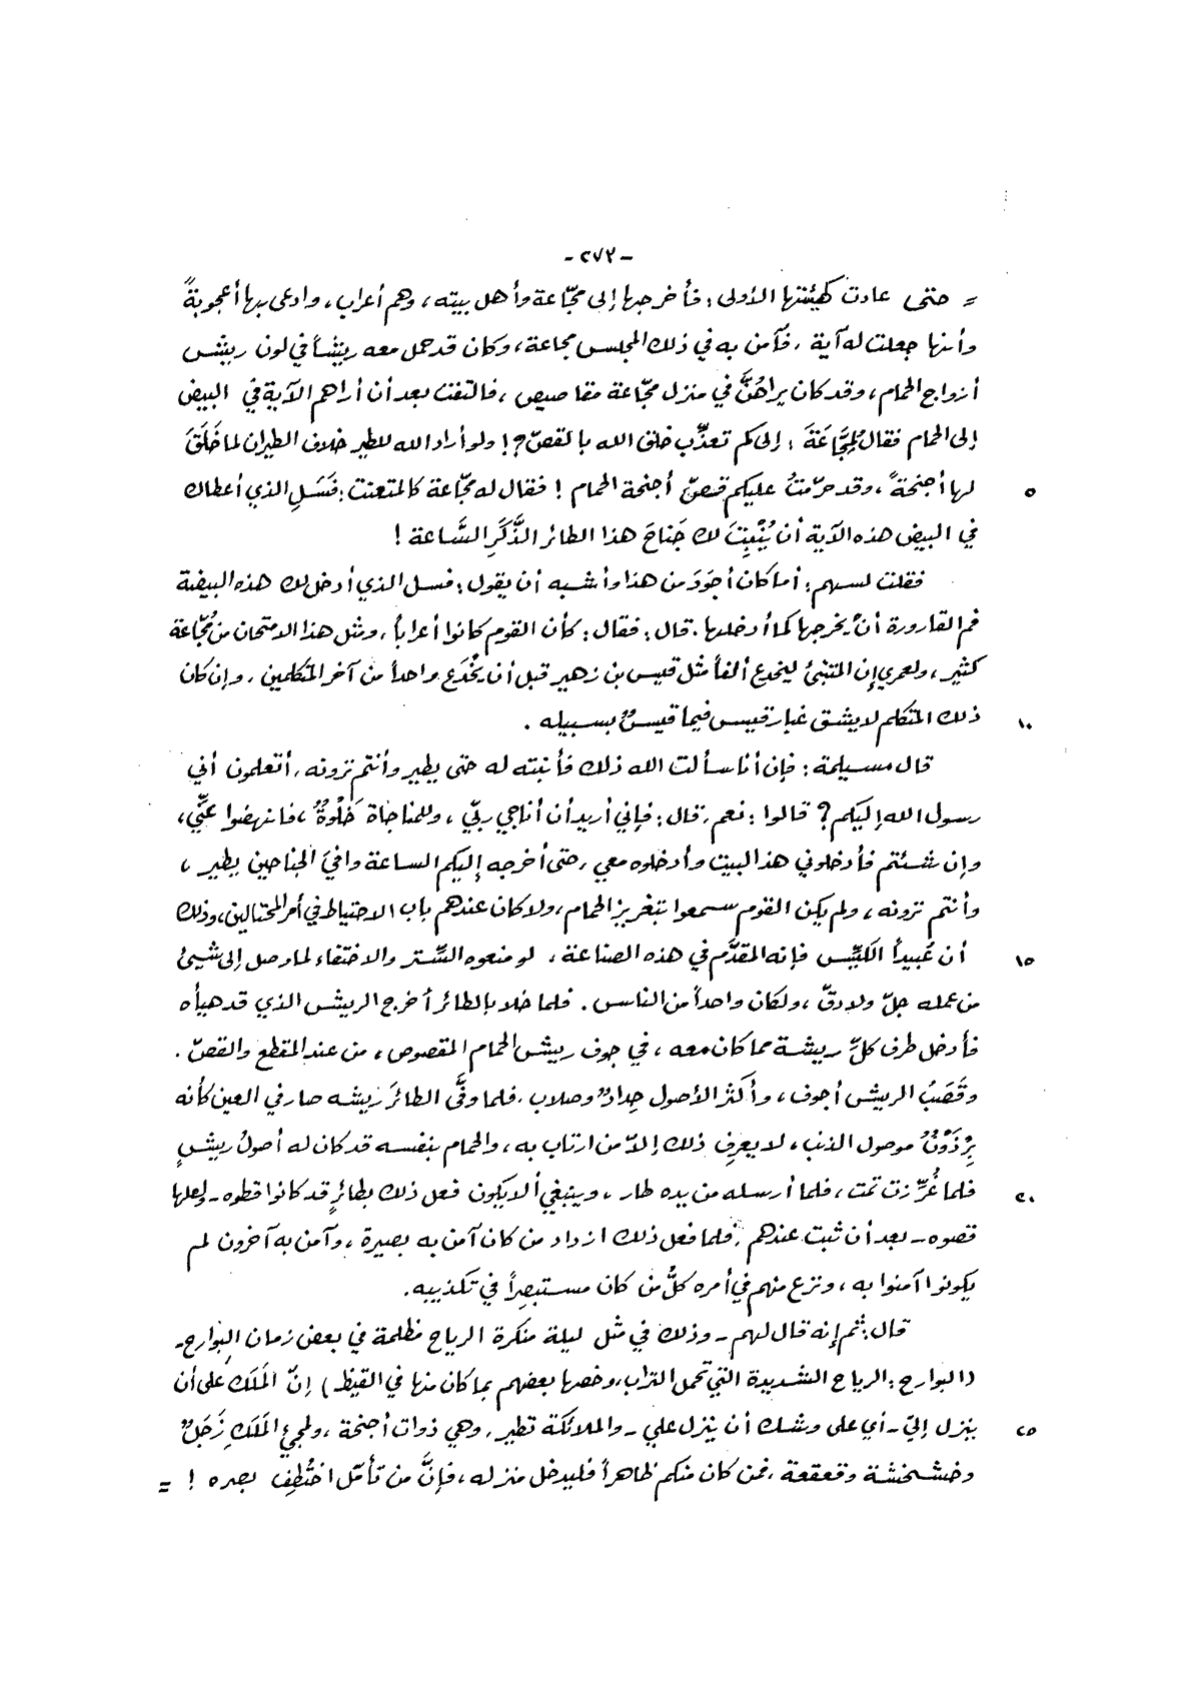 - ٢٧٢ -
= حتى عادت كهيئتها الأولى : فأخرجها إلى مجّاعة وأهل بيته ، وهم أعراب ، وادعى بها أعجوبةً
وأنها جعلت له آية ، فآمن به في ذلك المجلس مجاعة ، وكان قد حمل معه ريشاً في لون ريش
أزواج الحمام ، وقد كان يراهُنَّ في منزل مجّاعة مقاصيص ، فالتفت بعد أن أراهم الآية في البيض
إلى الحمام فقال لمُجَّاعَةَ : إلى كم تعذِّب خلق الله بالقصّ ؟! ولو أراد الله للطير خلاف الطيران لما خَلَقَ
٥ لها أجنحةً ، وقد حرّمتُ عليكم قصّ أجنحة الحمام ! فقال له مجّاعة كالمتعنت : فَسَلِ الذي أعطاك
في البيض هذه الآية أن يُنْبِتَ لك جَناحَ هذا الطائر الذَّكَرِ السَّاعة !
فقلت لسهم : أما كان أجوَدَ من هذا وأشبه أن يقول : فسل الذي أدخل لك هذه البيضة
فم القارورة أن يخرجها كما أدخلها . قال : فقال : كأن القوم كانوا أعراباً ، ومثل هذا الامتحان من مُجّاعة
كثير ، ولعمري إن المتنبئ ليخدع ألفاً مثل قيس بن زهير قبل أن يَخْدَع واحداً من آخر المتكلمين . وإن كان
١٠ ذلك المتكلم لا يشق غبار قيس فيما قيسٌ بسبيله .
قال مسيلمة : فإن أنا سألت الله ذلك فأنبته له حتى يطير وأنتم ترونه ، أتعلمون أني
رسول الله إليكم ؟ قالوا : نعم . قال : فإني أريد أن أناجي ربّي ، وللمناجاة خَلْوةٌ ، فانهضوا عنِّي ،
وإن شئتم فأدخلوني هذا البيت وأدخلوه معي ، حتى أخرجه إليكم الساعة وافيَ الجناحين يطير ،
وأنتم ترونه ، ولم يكن القوم سمعوا بتغريز الحمام ، ولا كان عندهم باب الاحتياط في أمر المحتالين ، وذلك
١٥ أن عُبيداً الكَيِّس فإنه المقدَّم في هذه الصناعة ، لو منعوه السِّتر والاختفاء لما وصل إلى شيئ
من عمله جلّ ولا دقّ ، ولكان واحداً من الناس . فلما خلا بالطائر أخرج الريش الذي قد هيأه
فأدخل طرف كلِّ ريشة مما كان معه ، في جوف ريش الحمام المقصوص ، من عند المقطع والقصّ .
وقَصَبُ الريش أجوف ، وأكثر الأصول حِدادٌ وصلاب . فلما وفَّى الطائرَ ريشه صار في العين كأنه
بِرْذَوْنٌ موصول الذنب ، لا يعرف ذلك إلا من ارتاب به ، والحمام بنفسه قد كان له أصولُ ريشٍ
٢٠ فلما غُرِّزت تمت ، فلما أرسله من يده طار ، وينبغي ألا يكون فعل ذلك بطائرٍ قد كانوا قطوه - ولعلها
قصوه - بعد أن ثبت عندهم . فلما فعل ذلك ازداد من كان آمن به بصيرة ، وآمن به آخرون لم
يكونوا آمنوا به ، ونزع منهم في أمره كلُّ من كان مستبصِراً في تكذيبه .
قال : ثم إنه قال لهم - وذلك في مثل ليلة منكرة الرياح مظلمة في بعض زمان البوارح -
( البوارح : الرياح الشديدة التي تحمل التراب ، وخصها بعضهم بما كان منها في القيظ ) إنّ المَلَك على أن
٢٥ ينزل إليّ - أي على وشك أن ينزل علي - والملائكة تطير ، وهي ذوات أجنحة ، ولمجئ المَلَكِ زَجَلٌ
وخشخشة وقعقعة ، فمن كان منكم ظاهراً فليدخل منزله ، فإنَّ من تأمّل اختُطِف بصره ! =